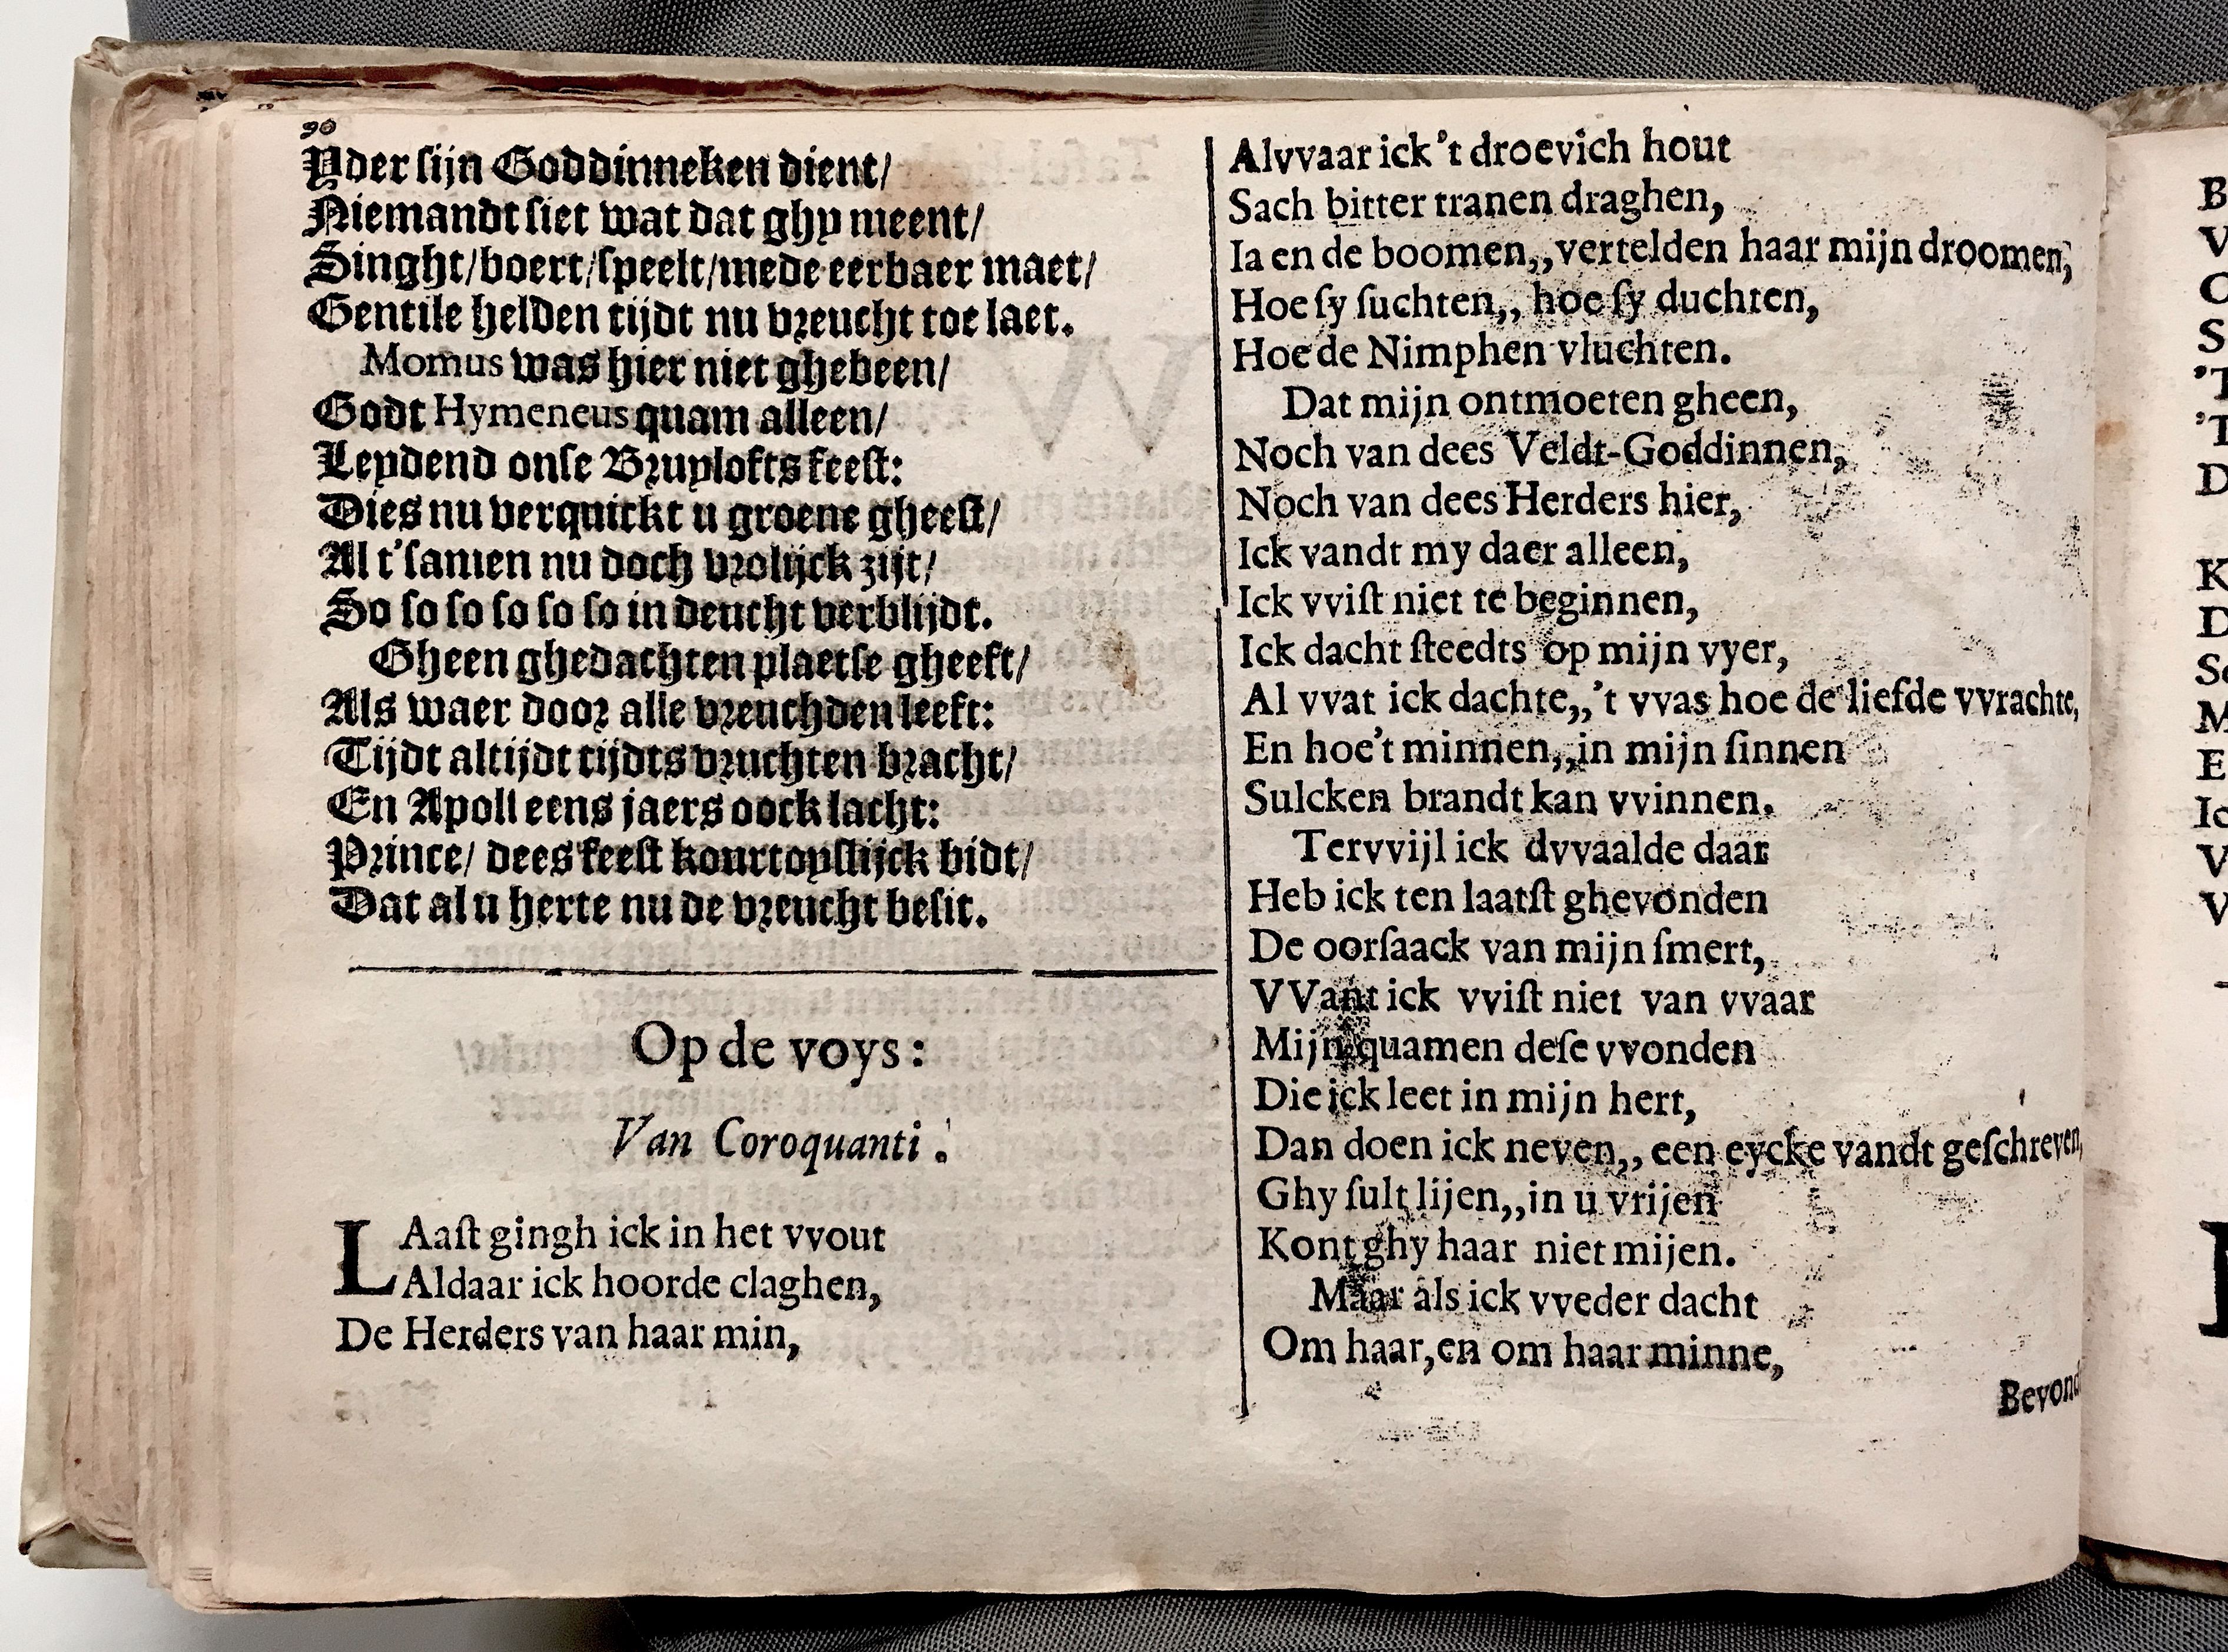 90
Yder sijn Goddinneken dient/
Niemandt siet wat dat ghy meent/
Singht/boert/speelt/mede eerbaer maet/
Gentile helden tijdt nu vreucht toe laet.
Momus was hier niet ghebeen/
Godt Hymeneus quam alleen/
Leydend onse Bruylofts feest:
Dies nu verquickt u groene gheest/
Al t'samen nu doch vrolijck zijt/
So so so so so so in deucht verblijdt.
Gheen ghedachten plaetse gheeft/
Als waer door alle vreuchden leeft:
Tijdt altijdt tijdts vruchten bracht/
En Apoll eens jaers oock lacht:
Prince/ dees feest kourtoyslijck bidt/
Dat al u herte nu de vreucht besit.
Op de voys:
Van Coroquanti.
LAast gingh ick in het vvout
Aldaar ick hoorde claghen,
De Herders van haar min,
Alvvaar ick 't droevich hout
Sach bitter tranen draghen,
Ia en de boomen,, vertelden haar mijn droomen,
Hoe sy suchten,, hoe sy duchten,
Hoe de Nimphen vluchten.
Dat mijn ontmoeten gheen,
Noch van dees Veldt-Goddinnen,
Noch van dees Herders hier,
Ick vandt my daer alleen,
Ick vvist niet te beginnen,
Ick dacht steedts op mijn vyer,
Al vvat ick dachte,, 't vvas hoe de liefde vvrachte,
En hoe't minnen,, in mijn sinnen
Sulcken brandt kan vvinnen.
Tervvijl ick dvvaalde daar
Heb ick ten laatst ghevonden
De oorsaack van mijn smert,
VVant ick vvist niet van vvaar
Mijn quamen dese vvonden
Die ick leet in mijn hert,
Dan doen ick neven,, een eycke vandt geschreven,
Ghy sult lijen,, in u vrijen
Kont ghy haar niet mijen.
Maar als ick vveder dacht
Om haar, en om haar minne,